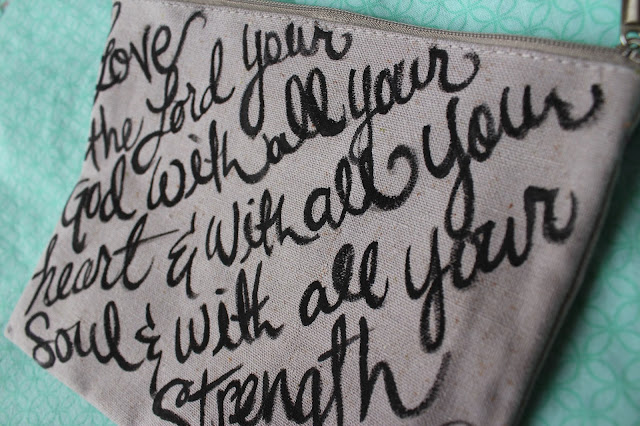 Love
the Lord your
God with all your
heart & with all your
Soul & with all your
Strength